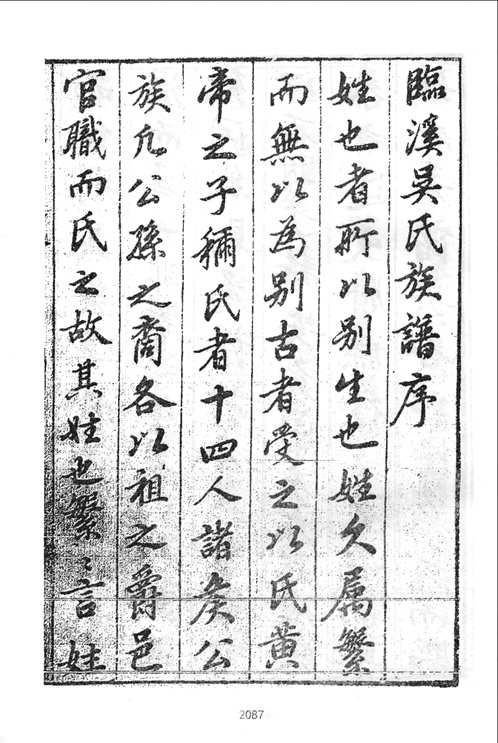 臨溪吳氏族譜序
姓也者所以别生也姓久属繁
而無以為别古者受之以氏黄
帝之子稱氏者十四人諸矦公
族凢公孫之裔各以祖之爵邑
官職而氏之故其姓也繁〻言姓
2087